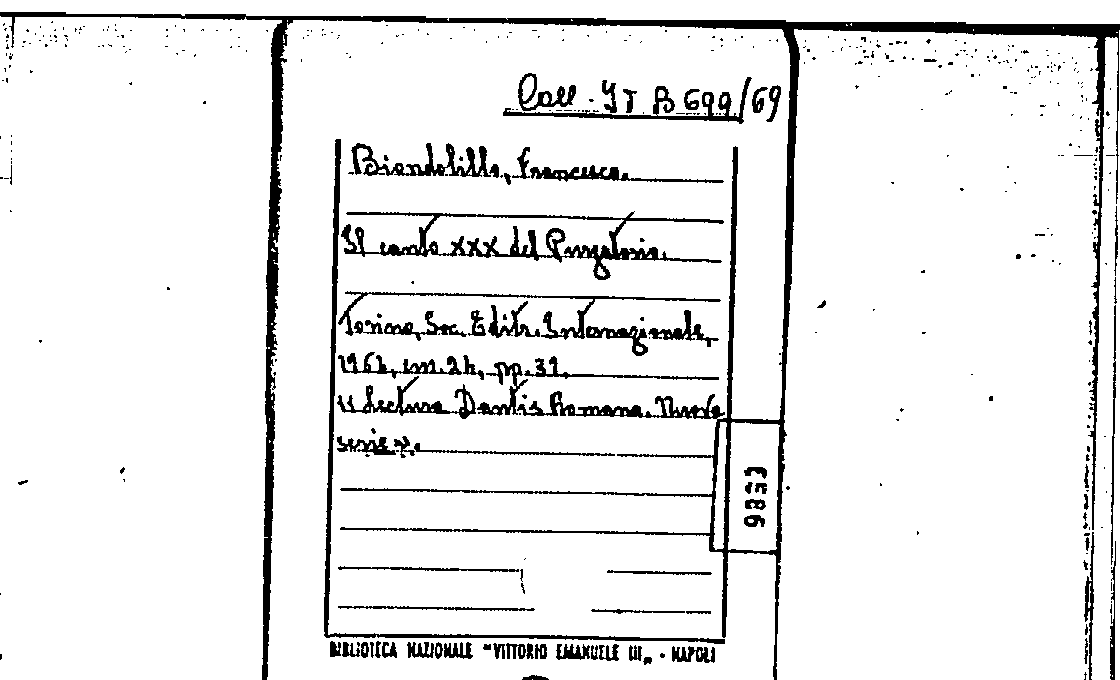 Coll. IT B 699/69
Biondolillo, Francesco.
Il canto XXX del Purgatorio.
Torino, Soc. Editr. Internazionale,
1964, cm. 24, pp. 31.
"Lectura Dantis Romana. Nuova
serie".
9853
BIBLIOTECA NAZIONALE "VITTORIO EMANUELE III" - NAPOLI